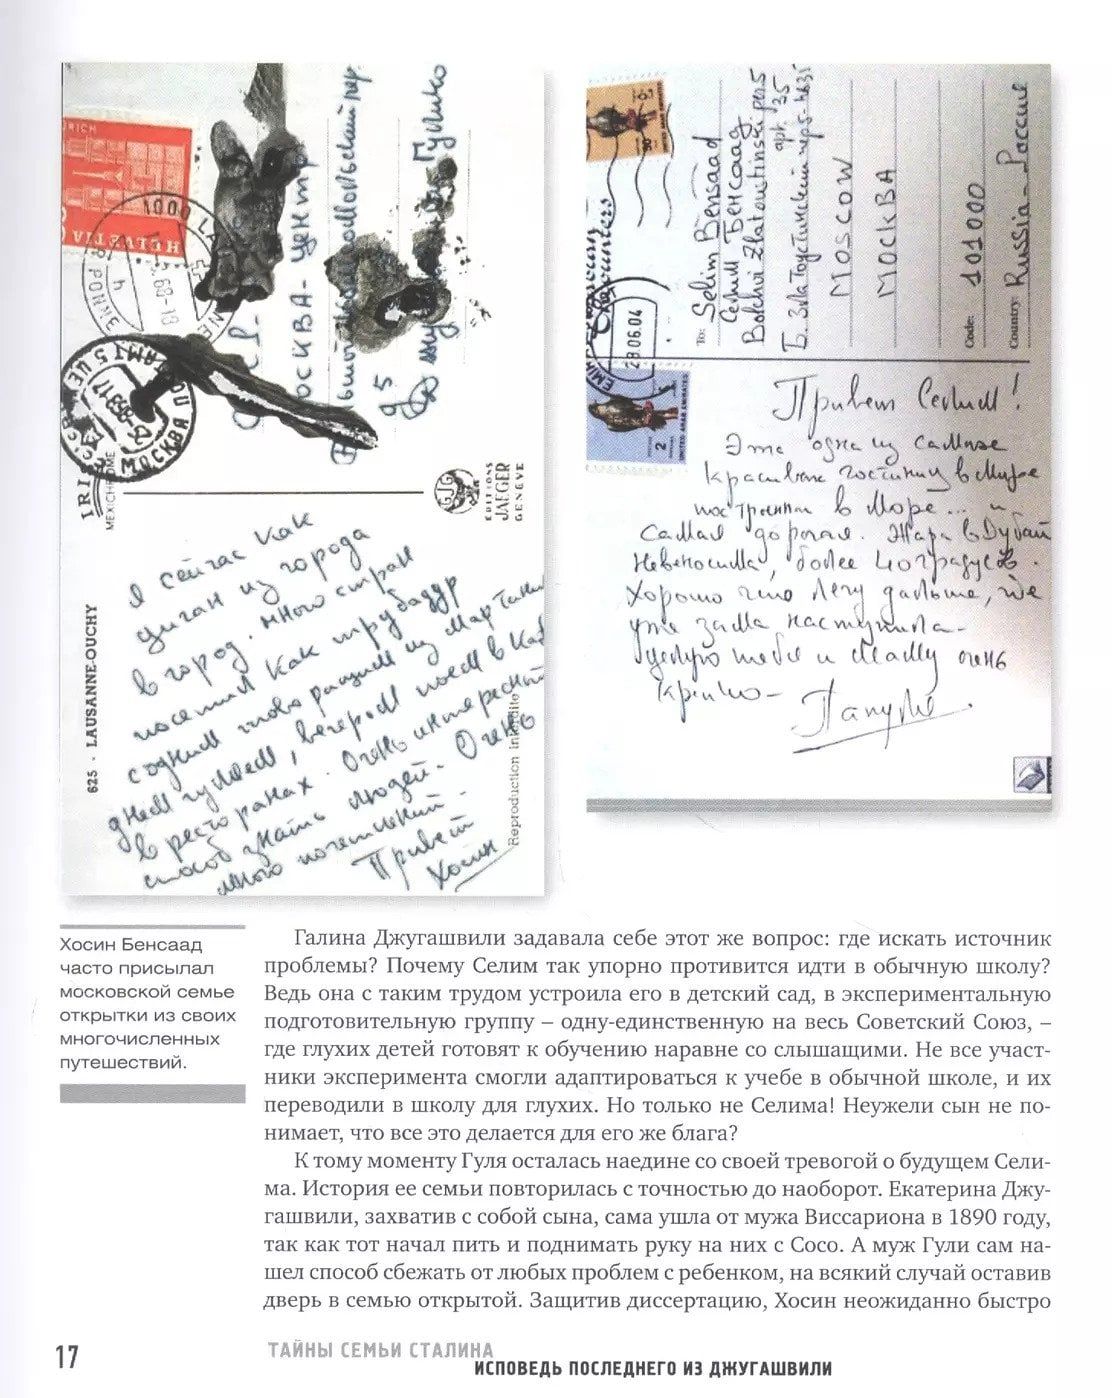 HELVETIA
МОСКВА
МОСКВА-ЦЕНТР
95
EDITIONS
JAEGER
GENÈVE
GJG
IRIS
MEXICHROME
625 - LAUSANNE-OUCHY
Reproduction interdite
Я сейчас как
цыган из города
в город. много стран
посетил как трубадур
с одним
днём гуляем, вечером поём в
в ресторанах. Очень интересный
способ знать людей. Очень
много
Привет
Хосин
To:
Selim Bensaad
Селим Бенсаад
Bolshoi Zlatoustinski per. 5
apt 35
Б. Златоустинский
MOSCOW
МОСКВА
Code: 101000
Country: Russia - Россия
28.06.04
2
UNITED ARAB EMIRATES
Привет Селим!
Это одна из самых
красивых гостиниц в мире
построена в море... и
самая дорогая. Жара в Дубай
невеносима, более 40 градусов.
Хорошо что лечу дальше, где
уже зима наступила-
целую тебя и маму очень
крепко-
Папуля.
Хосин Бенсаад
часто присылал
московской семье
открытки из своих
многочисленных
путешествий.
Галина Джугашвили задавала себе этот же вопрос: где искать источник
проблемы? Почему Селим так упорно противится идти в обычную школу?
Ведь она с таким трудом устроила его в детский сад, в экспериментальную
подготовительную группу – одну-единственную на весь Советский Союз, –
где глухих детей готовят к обучению наравне со слышащими. Не все участ-
ники эксперимента смогли адаптироваться к учебе в обычной школе, и их
переводили в школу для глухих. Но только не Селима! Неужели сын не по-
нимает, что все это делается для его же блага?
К тому моменту Гуля осталась наедине со своей тревогой о будущем Сели-
ма. История ее семьи повторилась с точностью до наоборот. Екатерина Джу-
гашвили, захватив с собой сына, сама ушла от мужа Виссариона в 1890 году,
так как тот начал пить и поднимать руку на них с Сосо. А муж Гули сам на-
шел способ сбежать от любых проблем с ребенком, на всякий случай оставив
дверь в семью открытой. Защитив диссертацию, Хосин неожиданно быстро
17
ТАЙНЫ СЕМЬИ СТАЛИНА
ИСПОВЕДЬ ПОСЛЕДНЕГО ИЗ ДЖУГАШВИЛИ